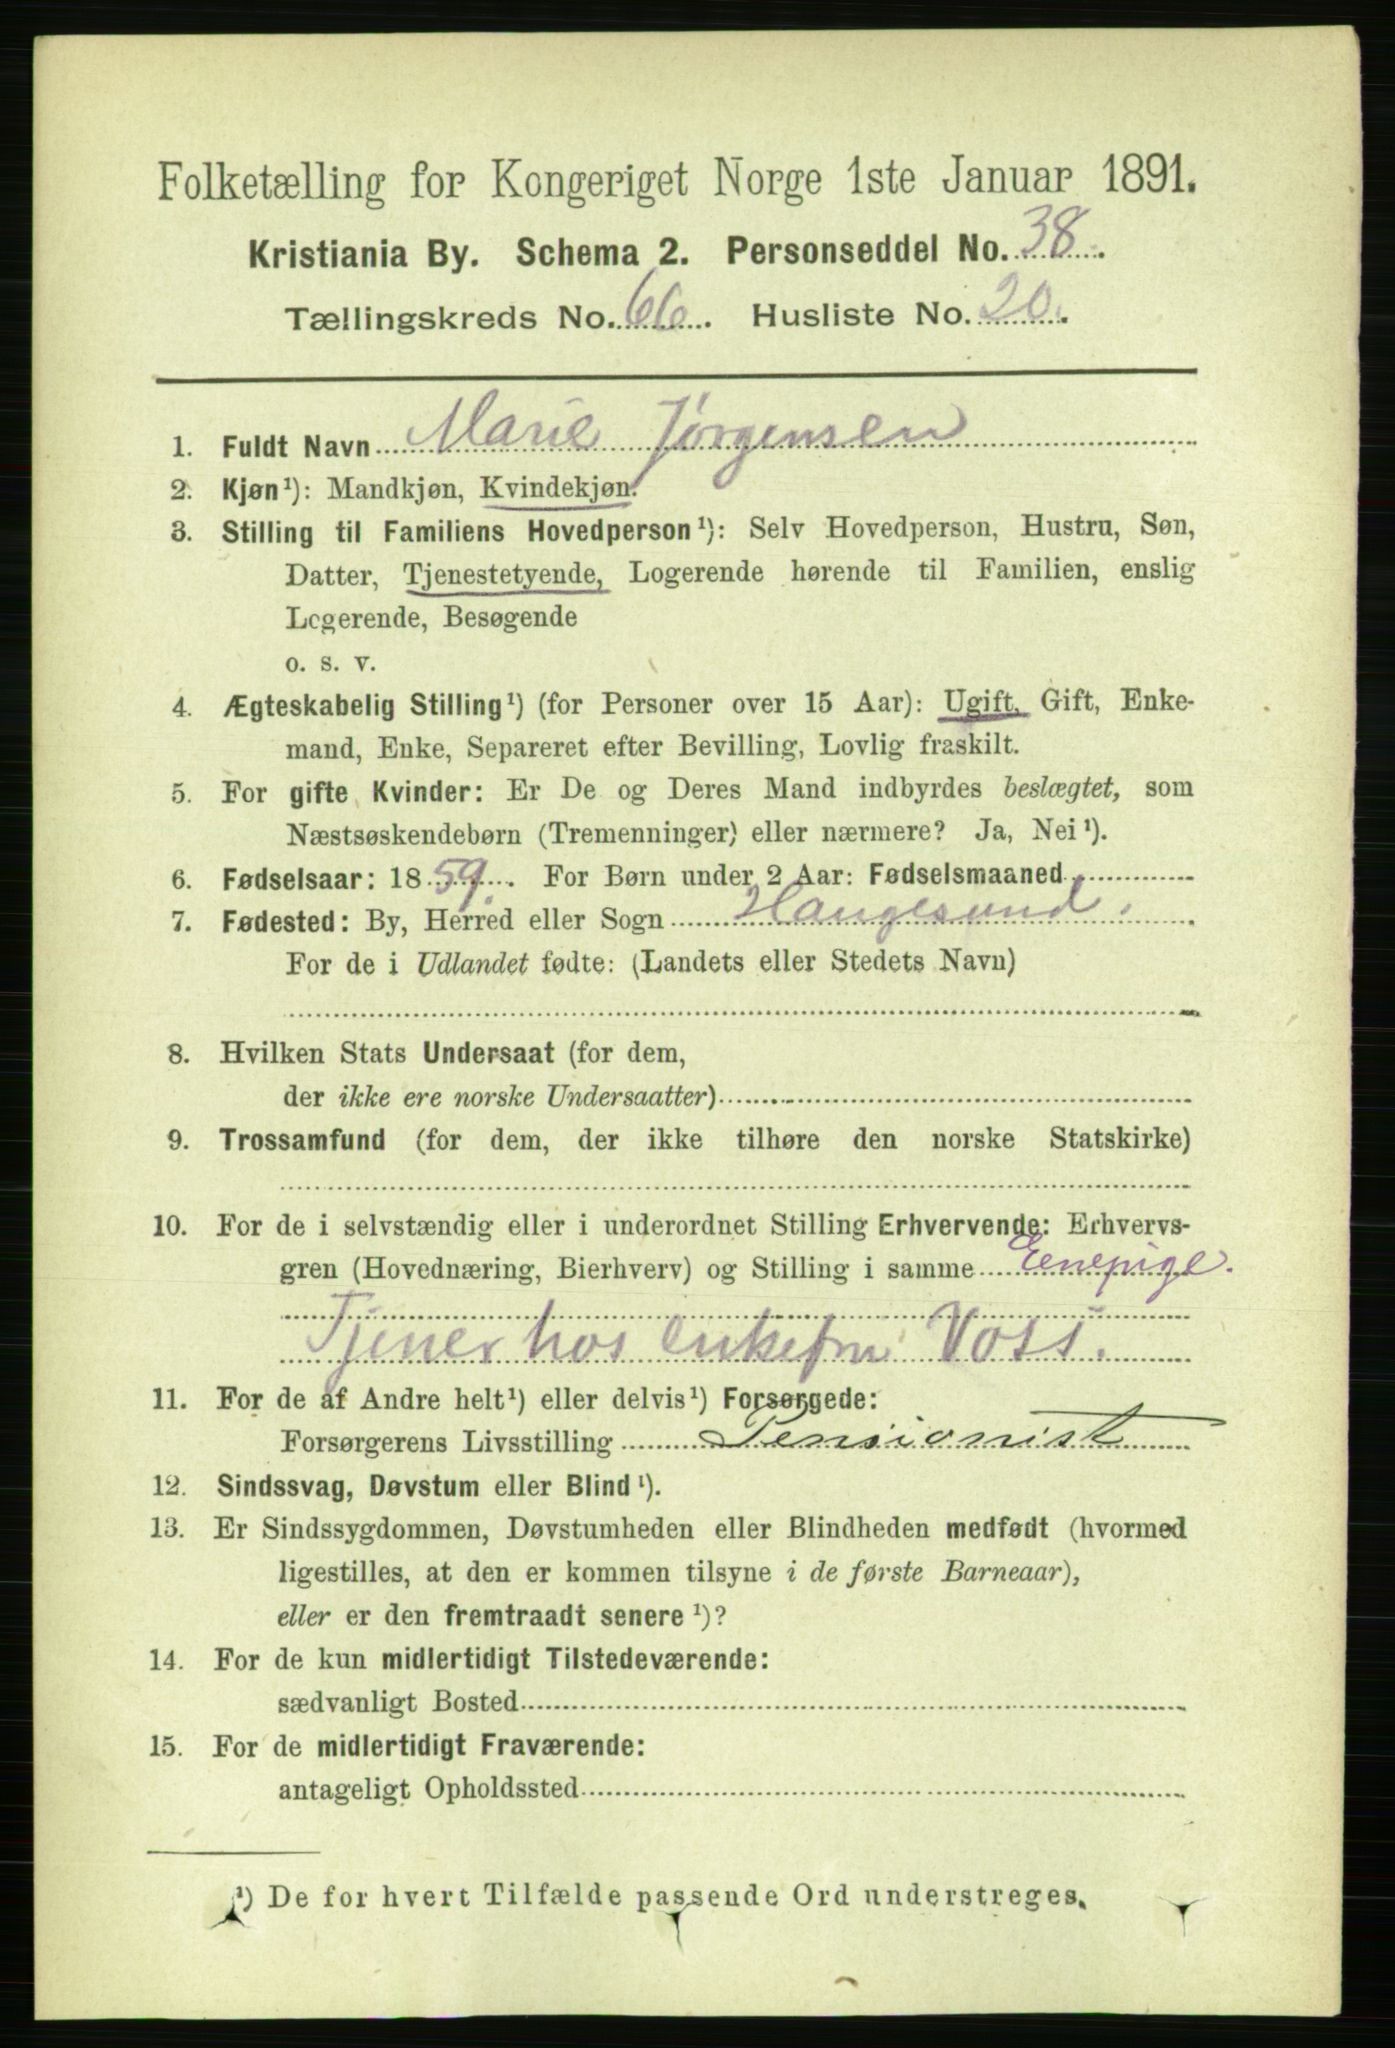 Folketælling for Kongeriget Norge 1ste Januar 1891.
Kristiania By. Schema 2. Personseddel No. 38.
Tællingskreds No. 66. Husliste No. 20.
1. Fuldt Navn Marie Jørgensen
2. Kjøn¹): Mandkjøn, Kvindekjøn.
3. Stilling til Familiens Hovedperson¹): Selv Hovedperson, Hustru, Søn,
Datter, Tjenestetyende, Logerende hørende til Familien, enslig
Logerende, Besøgende
o. s. v.
4. Ægteskabelig Stilling¹) (for Personer over 15 Aar): Ugift, Gift, Enke-
mand, Enke, Separeret efter Bevilling, Lovlig fraskilt.
5. For gifte Kvinder: Er De og Deres Mand indbyrdes beslægtet, som
Næstsøskendebørn (Tremenninger) eller nærmere? Ja, Nei¹).
6. Fødselsaar: 1859. For Børn under 2 Aar: Fødselsmaaned
7. Fødested: By, Herred eller Sogn Haugesund.
For de i Udlandet fødte: (Landets eller Stedets Navn)
8. Hvilken Stats Undersaat (for dem,
der ikke ere norske Undersaatter)
9. Trossamfund (for dem, der ikke tilhøre den norske Statskirke)
10. For de i selvstændig eller i underordnet Stilling Erhvervende: Erhvervs-
gren (Hovednæring, Bierhverv) og Stilling i samme Eenepige.
Tjener hos enkefru Voss.
11. For de af Andre helt¹) eller delvis¹) Forsørgede:
Forsørgerens Livsstilling Pensionist
12. Sindssvag, Døvstum eller Blind¹).
13. Er Sindssygdommen, Døvstumheden eller Blindheden medfødt (hvormed
ligestilles, at den er kommen tilsyne i de første Barneaar),
eller er den fremtraadt senere¹)?
14. For de kun midlertidigt Tilstedeværende:
sædvanligt Bosted
15. For de midlertidigt Fraværende:
antageligt Opholdssted
¹) De for hvert Tilfælde passende Ord understreges.